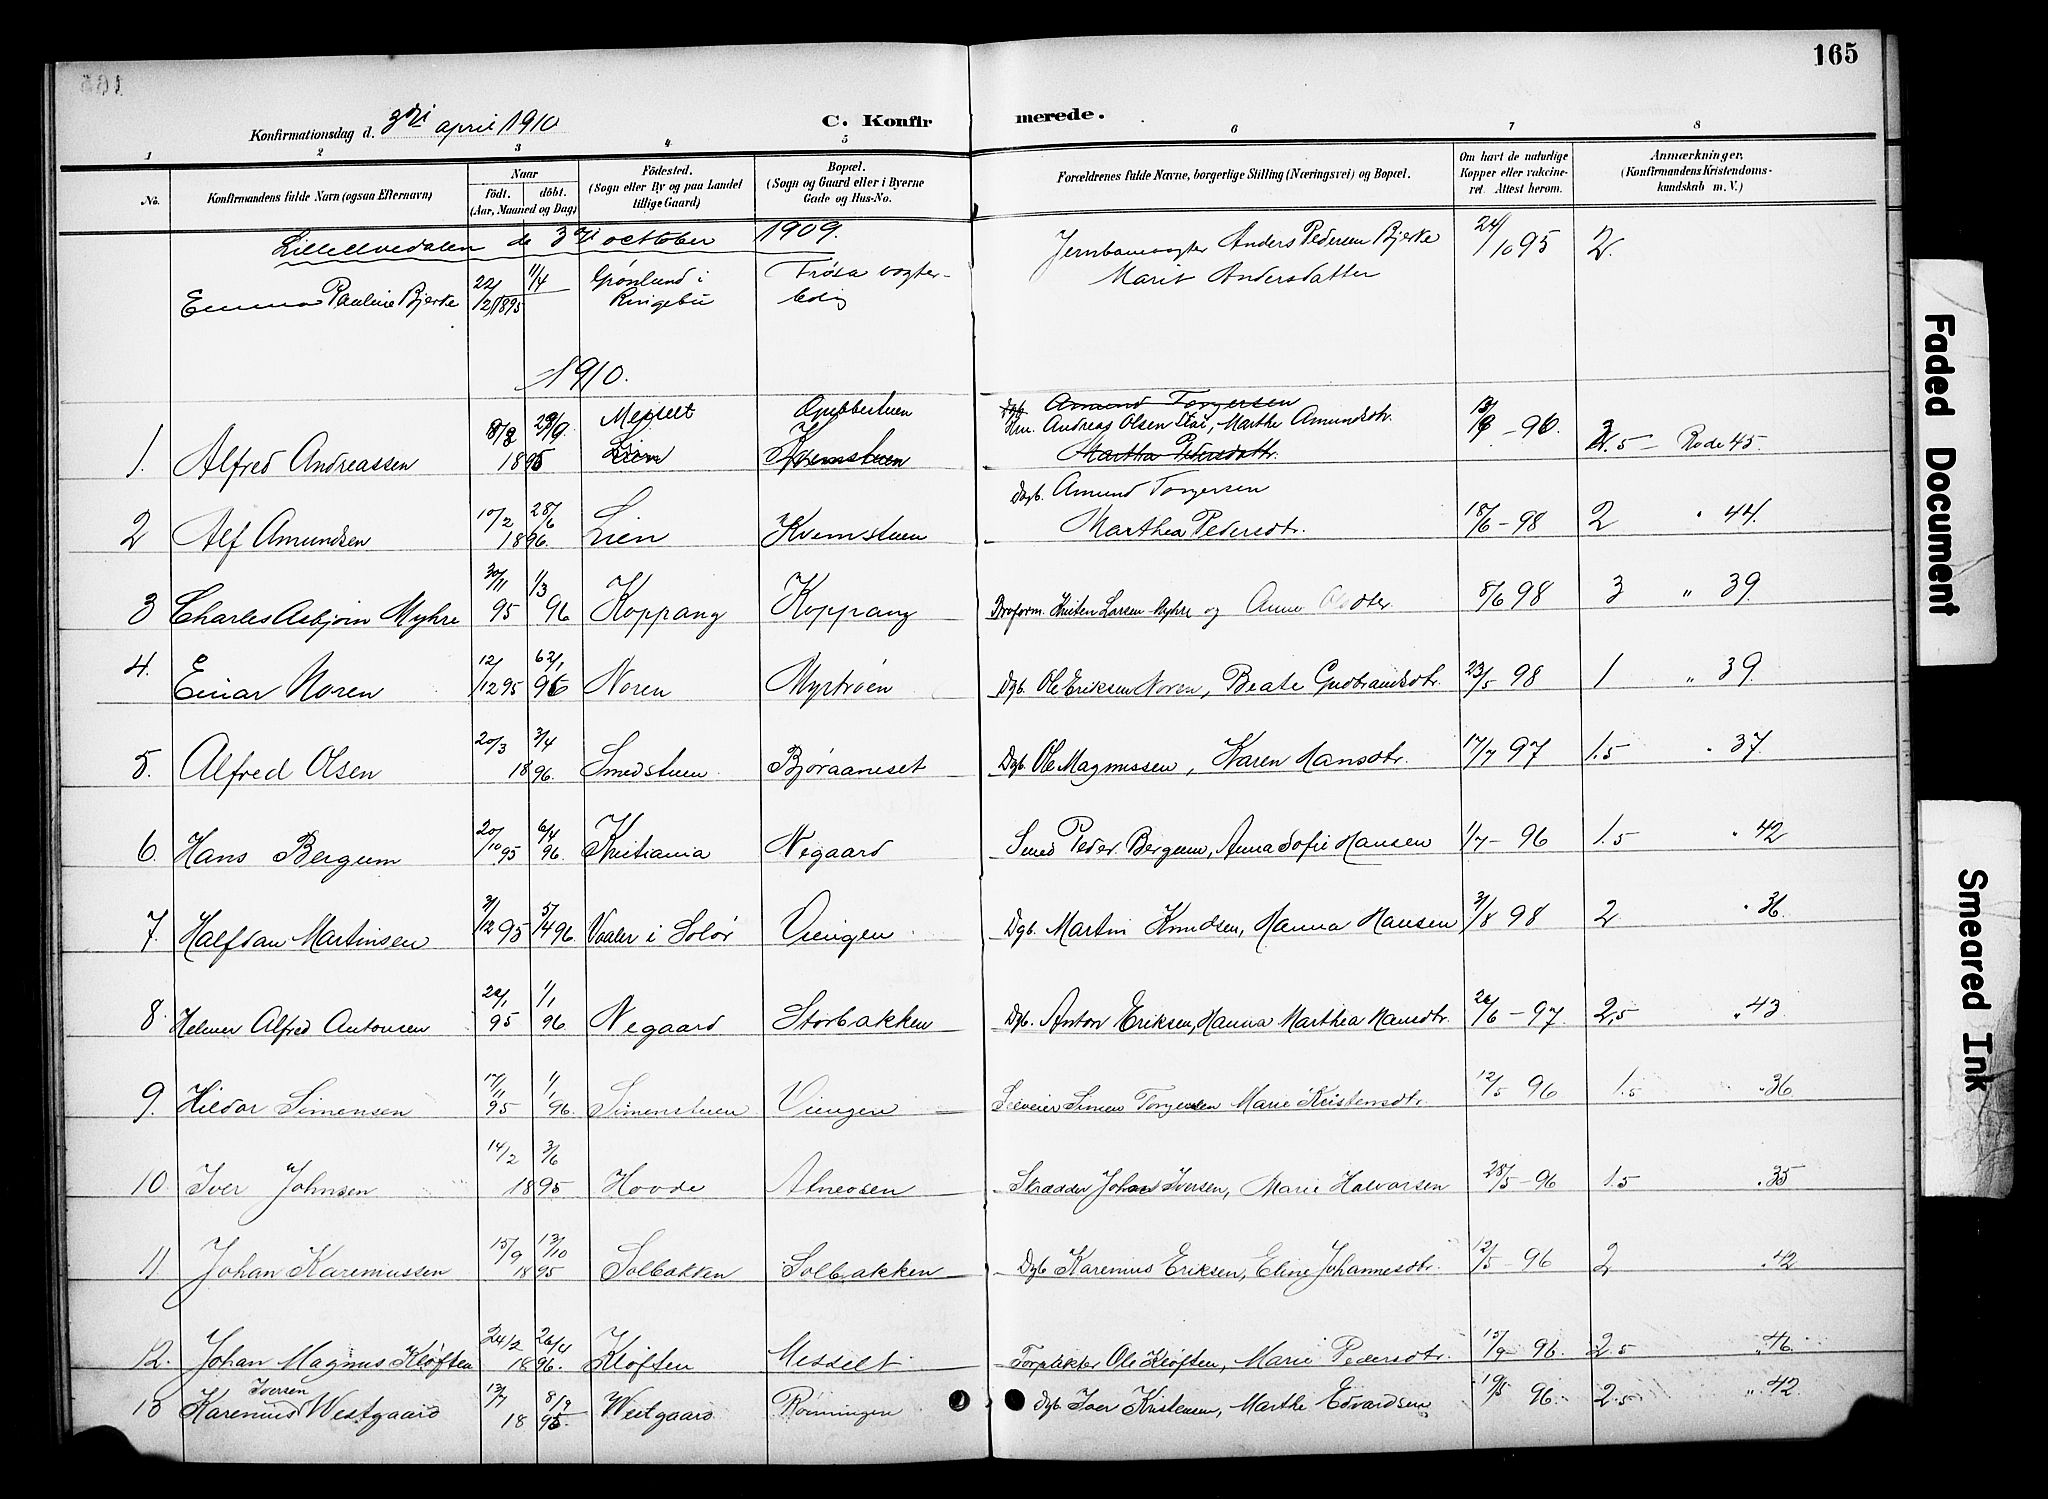 165
Konfirmationsdag d. 3die april 1910
C. Konfirmerede.
1 2 3 4 5 6 7 8
No. Konfirmandens fulde Navn (ogsaa Efternavn) Naar født. døbt. (Aar, Maaned og Dag) Fødested. (Sogn eller By og paa Landet tillige Gaard) Bopæl. (Sogn og Gaard eller i Byerne Gade og Hus-No. Forældrenes fulde Navne, borgerlige Stilling (Næringsvei) og Bopæl. Om havt de naturlige Kopper eller vaccineret. Attest herom. Anmærkninger. (Konfirmandens Kristendomskundskab m. V.)
Lilleelvedalen de 3die october 1909.
Emma Pauline Bjerke 22/12 1895 11/4 Grønlund i Ringebu Trøsa vogterbolig Jernbanevogter Anders Pedersen Bjerke Marit Andersdatter 24/10 95 2.
1910.
1. Alfred Andreassen 1895 Messelt Lien Kvernstuen Amund Torgersen Andreas Olsen Stai, Marthe Amundsdtr. Martha Pedersdattr. 96. Rode 45.
2 Alf Amundsen 10/2 28/6 1896. Lien Kvernstuen Dgb. Amund Torgersen Marthea Pedersdtr. 18/6 - 98 2 " 44.
3 Charles Asbjørn Myhre 30/11 95 1/3 96 Koppang Koppang Larsen Myhre og Anne 8/6 98 3 " 39.
4. Einar Noren 12/12 95 96 Noren Myrtrøen Dgb. Ole Eriksen Noren, Beate Gudbrandsdtr. 23/5 98 1 " 39.
5. Alfred Olsen 20/3 3/4 1896. Smedstuen. Bjøraaneset Dgb. Ole Magnussen, Karen Hansdtr. 17/7 97 1.5 " 37.
6. Hans Bergum 20/10 95 6/4 96. Kristiania Negaard Smed Peder Bergum, Anna Sofie Hansen 1/7 - 96 1.5 " 42
7. Halfdan Martinsen 31/12 95 5/4 96. Vaaler i Solør Viengen Dgb. Martin Knudsen, Hanna Hansen 31/8 98 2 " 36.
8. Helmer Alfred Antonsen 95 1/1 96. Negaard Storbakken Dgb. Anton Eriksen, Hanna Marthea Hansdtr. 26/6 - 97. 2,5 " 43.
9. Hildor Simensen 17/11 95 1/1 96. Simenstuen Viengen Selveier Simen Torgersen Marie Kristensdtr. 12/5 96 1.5 " 36
10. Iver Johnsen 14/2 3/6 1895 Hovde Atneosen Skrædder Iversen, Marie Halvorsen 28/5 - 96 1.5 " 35
11. Johan Kareniussen 15/9 13/10 1895 Solbakken Solbakken Dgb Karenius Eriksen, Eline Johannesdtr. 12/5 - 96 2 " 42
12. Johan Magnus Kløften 24/2 26/4 1896. Kløften Messelt Ole Kløften, Marie Pedersdtr. 15/9 96. 2.5 " 46.
13 Karenius Iversen Westgaard 13/7 8/9 1895. Westgaard Rønningen Dgb. Iver Kristensen, Marthe Edvardsen 96. 2.5 " 42.
Faded Document
Smeared Ink